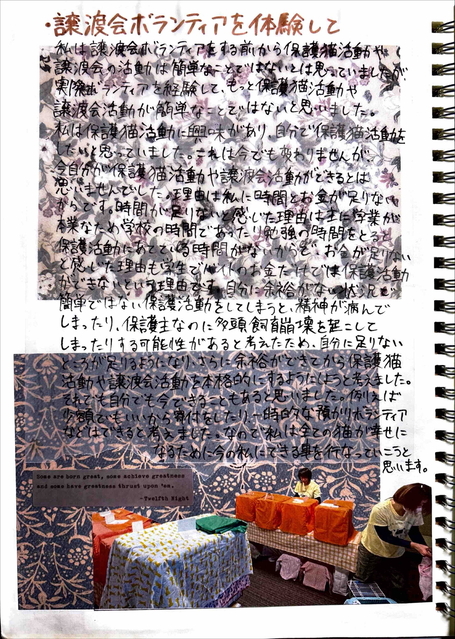 ・譲渡会ボランティアを体験して
私は譲渡会ボランティアをする前から保護猫活動や
譲渡会の活動は簡単なことではないとは思っていましたが
実際ボランティアを経験して、もっと保護猫活動や
譲渡会活動が簡単なことではないと思いました。
私は保護猫活動に興味があり、自分で保護猫活動を
したいと思っていました。これは今でも変わりませんが、
今自分が保護猫活動や譲渡会活動ができるとは
思いませんでした。理由は私に時間とお金が足りない
からです。時間が足りないと感じた理由はまず学業が
本業なため学校の時間であったり勉強の時間をとると
保護活動にあてている時間がないからと、お金が足りない
と感じた理由も学生でバイトのお金だけでは保護活動
ができないという理由です。自分に余裕がない状況で
簡単ではない保護活動をしてしまうと、精神が病んで
しまったり、保護主なのに多頭飼育崩壊を起こして
しまったりする可能性があると考えたため、自分に足りない
ところが足りるようになり、さらに余裕ができてから保護猫
活動や譲渡会活動を本格的にするようにしようと考えました。
それでも自分でも今できることもあると思いました。例えば
少額でもいいから寄付をしたり一時的な預かりボランティア
などはできると考えました。なので私は全ての猫が幸せに
なるために今の私にできる事を行なっていこうと
思います。
Some are born great, some achieve greatness
and some have greatness thrust upon 'em.
-Twelfth Night